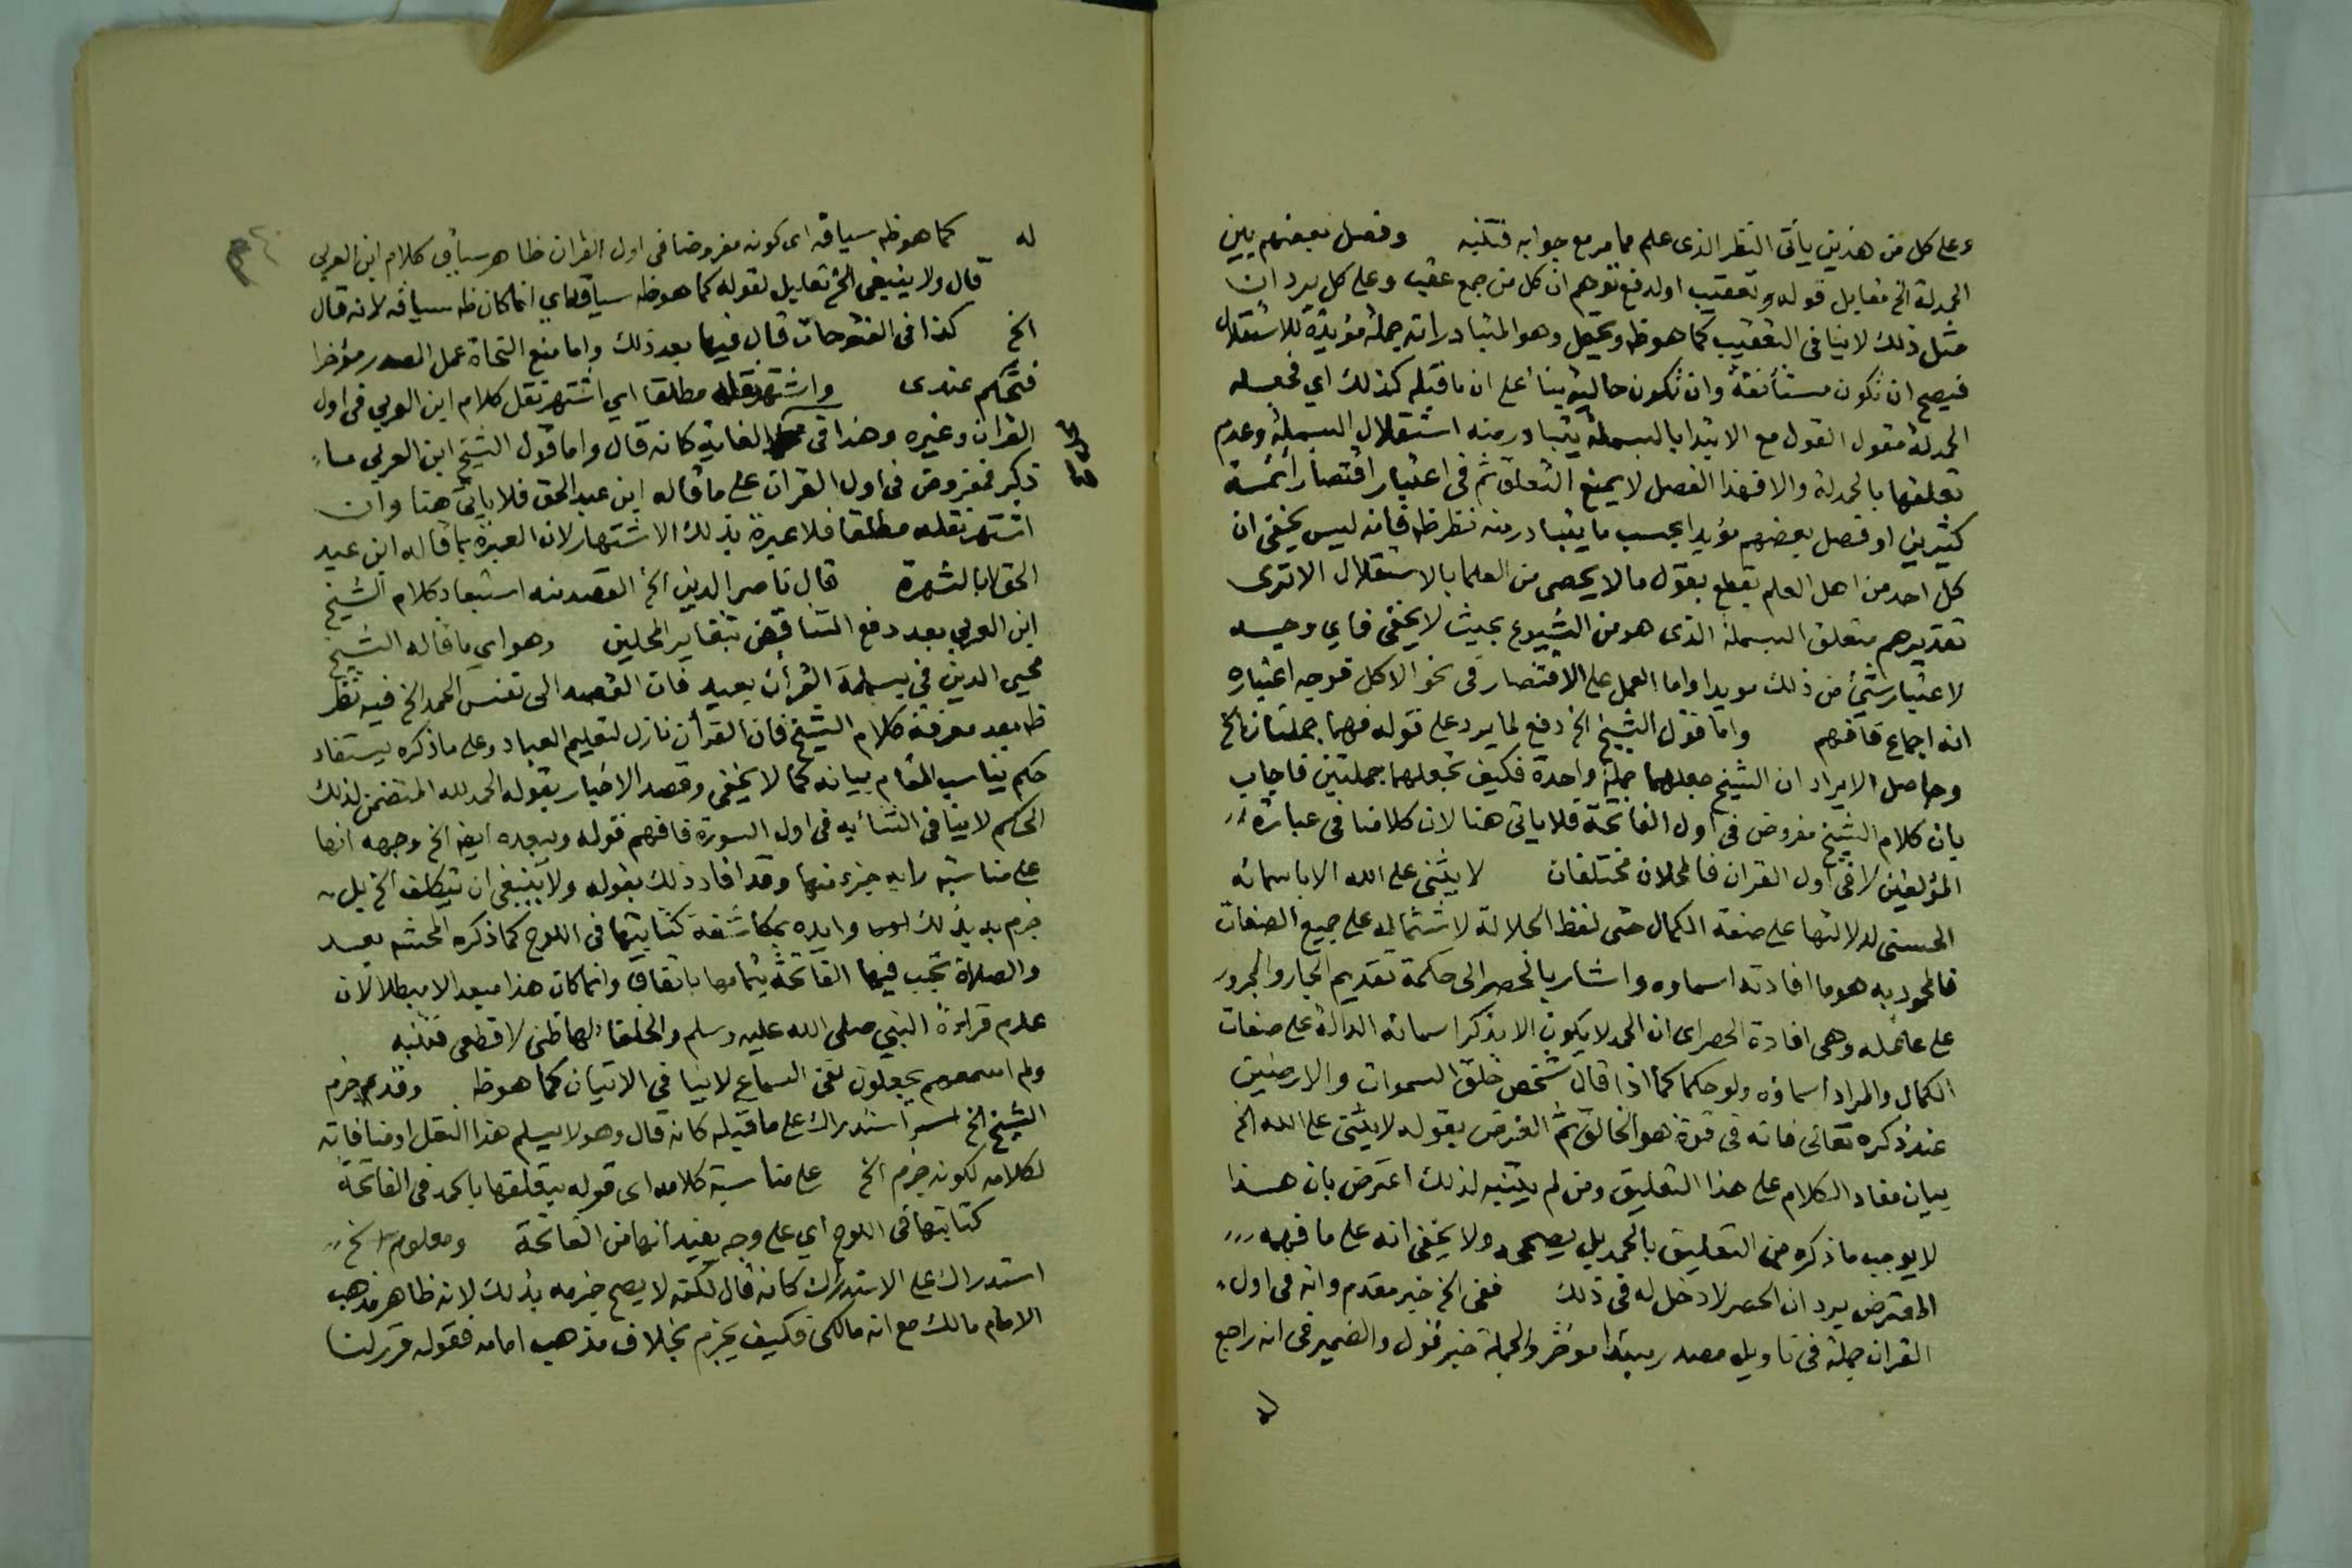 وعلى كل من هذين يأتى النظر الذى علم مما مر مع جوابه فتنبه وفصل بعضهم بين
الحمدلة الخ مقابل قوله وتعقيب اولدفع توهم ان كل من جمع عقب وعلى كل يرد ان
مثل ذلك لا ينافى التعقيب كما هو ظ ويحتمل وهو المتبادر انه جملة مؤيدة للاستقلال
فيصح ان تكون مستأنفة وان تكون حالية بناء على ان ما قبله كذلك اي فجعله
الحمدلة مقول القول مع الابتدا بالبسملة يتبادر منه استقلال البسملة وعدم
تعلقها بالحمدلة والا فهذا الفصل لا يمنع التعلق ثم فى اعتبار اقتصار ائمة
كثيرين او فصل بعضهم مؤيدا بحسب ما يتبادر منه نظر ظ فانه ليس يخفى ان
كل احد من اهل العلم يقطع بقول ما لا يحصى من العلما بالاستقلال الا ترى
تقديرهم متعلق البسملة الذى هو من الشيوع بحيث لا يخفى فاي وجه
لاعتبار شيئ من ذلك مويدا واما العمل على الاقتصار فى نحو الاكل فوجه اعتباره
انه اجماع فافهم واما قول الشيخ الخ دفع لما يرد على قوله فهما جملتان الخ
وحاصل الايراد ان الشيخ جعلهما جملة واحدة فكيف تجعلهما جملتين فاجاب
بان كلام الشيخ مفروض فى اول الفاتحة فلا ياتى هنا لان كلامنا فى عبارة
المؤلفين لا فى اول القران فالمحلان مختلفان لا يثنى على الله الا باسمائه
الحسنى لدلالتها على صفة الكمال حتى لفظ الجلالة لاشتماله على جميع الصفات
فالمحمود به هو ما افادته اسماوه واشار بالحصر الى حكمة تقديم الجار والمجرور
على عامله وهى افادة الحصر اى ان الحمد لا يكون الا بذكر اسمائه الدالة على صفات
الكمال والمراد اسماؤه ولو حكما كما اذا قال شخص خلق السموات والارضين
عند ذكره تعالى فانه فى قوة هو الخالق ثم الغرض بقوله لا يثنى على الله الخ
بيان مفاد الكلام على هذا التعليق ومن لم يتنبه لذلك اعترض بان هذا
لا يوجب ما ذكره من التعليق بالحمد بل يصححه ولا يخفى انه على ما فهمه
المعترض يرد ان الحصر لا دخل له فى ذلك ففى الخ خبر مقدم وانه فى اول
القران جملة فى تاويل مصدر مبتدا موخر والجملة خبر قول والضمير فى انه راجع
له
له كما هو ظ سياقه اى كونه مفروضا فى اول القران ظاهر سياق كلام ابن العربي
قال ولا ينبغى الخ تعليل لقوله كما هو ظ سياقه اي انما كان ظ سياقه لانه قال
الخ كذا فى الفتوحات قال فيها بعد ذلك واما منع النحاة عمل المصدر مؤخرا
فتحكم عندى واشتهر نقله مطلقا اي اشتهر نقل كلام ابن العربي فى اول
القران وغيره وهذا فى الغاية كانه قال واما قول الشيخ ابن العربي ما
ذكر فمفروض فى اول القران على ما قاله ابن عبد الحق فلا ياتى هنا وان
اشتهر نقله مطلقا فلا عبرة بذلك الاشتهار لان العبرة بما قاله ابن عبد
الحق لا بالشهرة قال ناصر الدين الخ القصد منه استبعاد كلام الشيخ
ابن العربي بعد دفع التناقض بتغاير المحلين وهو اي ما قاله الشيخ
محيي الدين فى بسملة القرآن بعيد فان القصد الى نفس الحمد الخ فيه نظر
ظ بعد معرفة كلام الشيخ فان القرآن نازل لتعليم العباد وعلى ما ذكره يستفاد
حكم يناسب المقام بيانه كما لا يخفى وقصد الاخبار بقوله الحمد لله المتضمن لذلك
الحكم لا ينافى الثنائيه فى اول السورة فافهم قوله ويبعده ايضا الخ وجهه انها
على مناسبة رايه جزء منها وقد افاد ذلك بقوله ولا ينبغى ان يتكلف الخ بل
جزم به بذلك وايده بمكاشفة كتابتها فى اللوح كما ذكره المحشى بعد
والصلاة تجب فيها الفاتحة بتمامها باتفاق وانما كان هذا مبعدا لا مبطلا لان
علام قراءة النبي صلى الله عليه وسلم والخلفا لها ظنى لا قطعى فتنبه
ولم اسمعهم يجعلون نفى السماع لا ينافى الاتيان كما هو ظ وقد جزم
الشيخ الخ استدراك على ما قبله كانه قال وهو لا يسلم هذا النقل او منافاته
لكلامه لكونه جزم الخ على مناسبة كلامه اى قوله بتعلقها بالحمد فى الفاتحة
كتابتها فى اللوح اي على وجه يفيد انها من الفاتحة ومعلوم الخ
استدراك على الاستدراك كانه قال لكنه لا يصح جزمه بذلك لانه ظاهر مذهب
الامام مالك مع انه مالكى فكيف يجزم بخلاف مذهب امامه فقوله قرر لنا